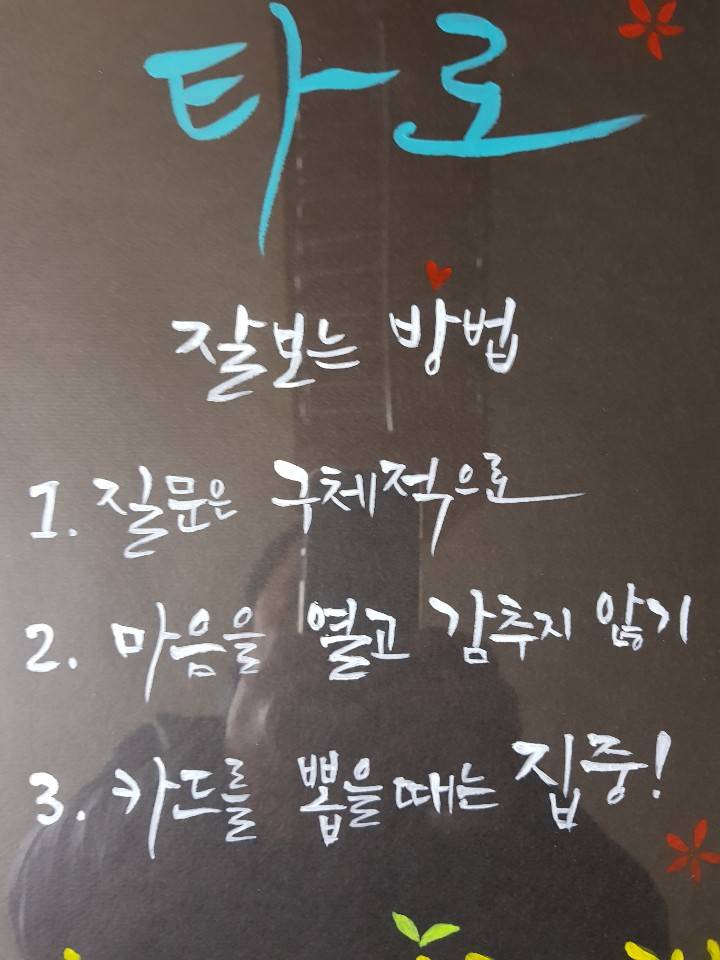 타로
잘보는 방법
1. 질문은 구체적으로
2. 마음을 열고 감추지 않기
3. 카드를 뽑을 때는 집중!